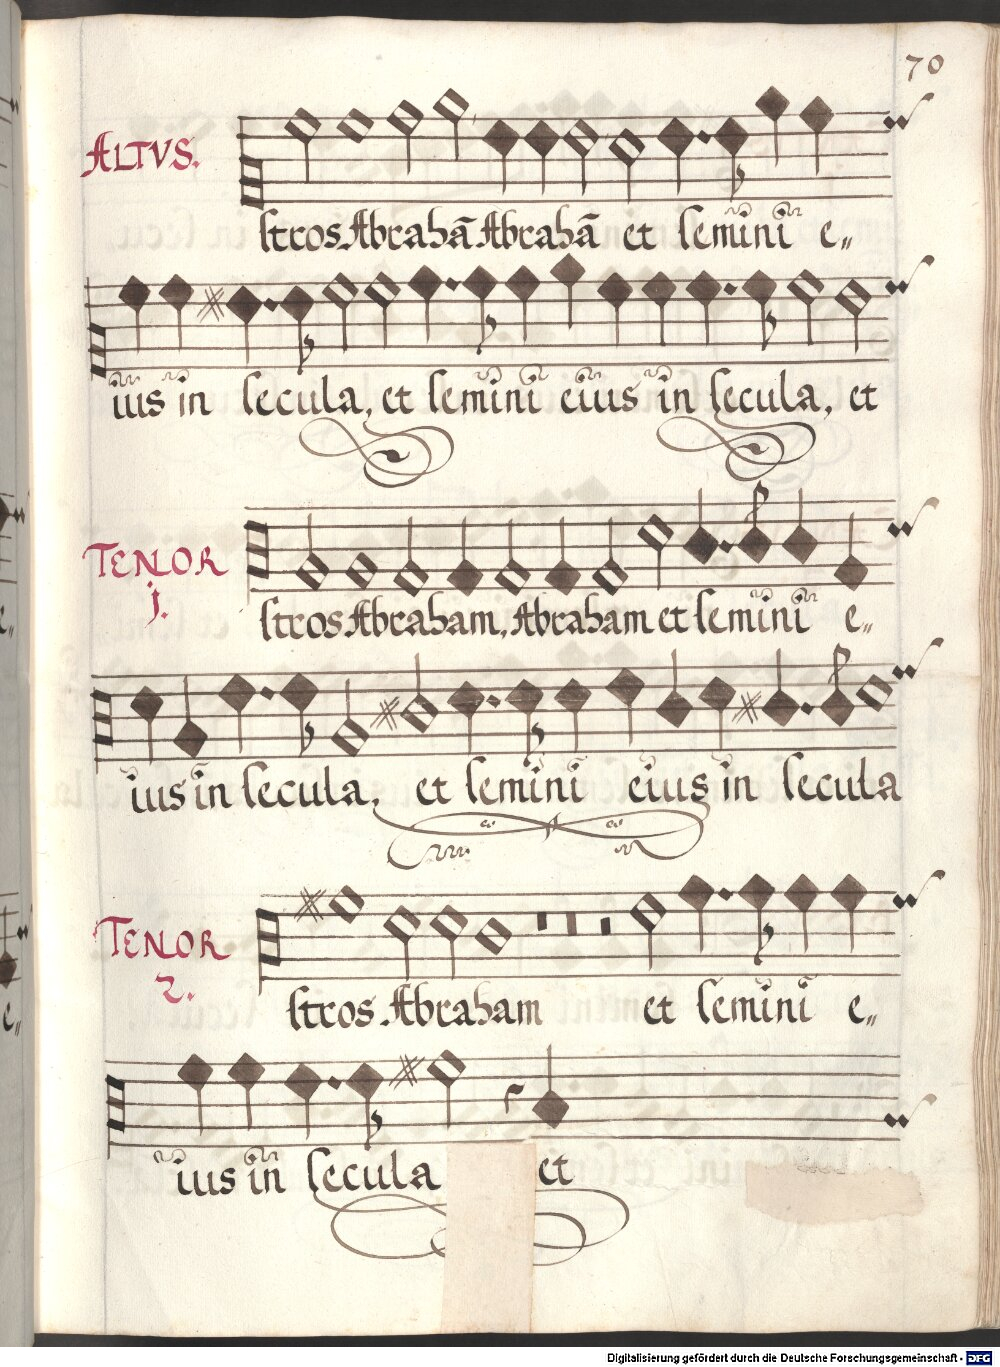 70
ALTVS.
stros Abrahā Abrahā et semini e,,
ius in secula, et semini eius in secula, et
TENOR
j.
stros Abraham, Abraham et semini e,,
ius in secula, et semini eius in secula
TENOR
2.
stros Abraham et semini e,,
ius in secula et
Digitalisierung gefördert durch die Deutsche Forschungsgemeinschaft - DFG